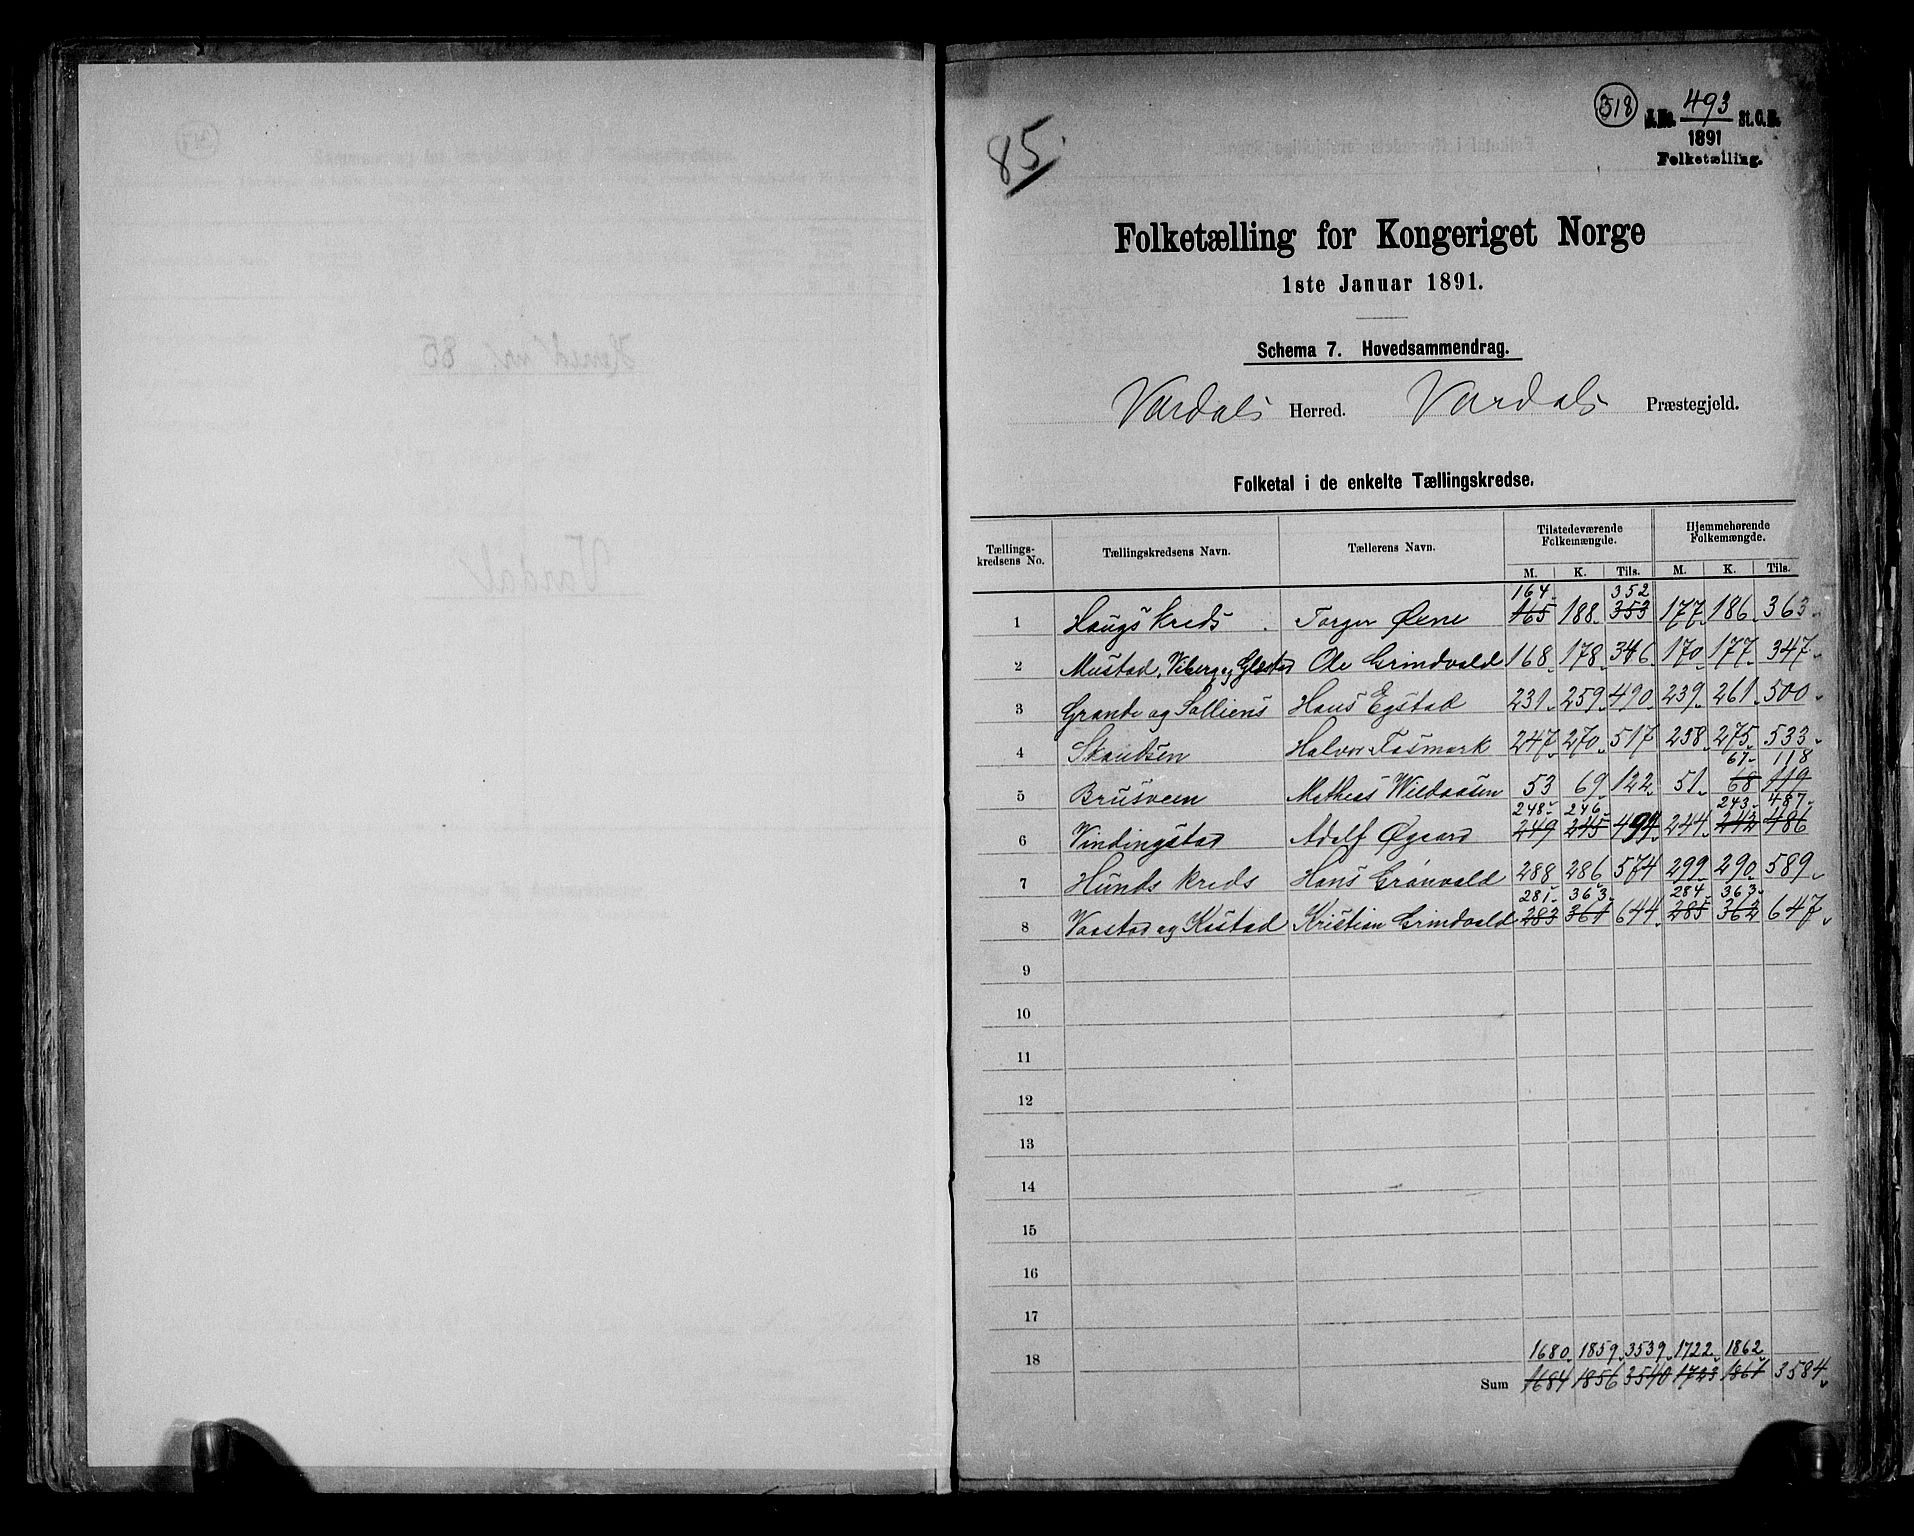 318
J.No. 493 St.C.B.
1891
Folketælling.
85
Folketælling for Kongeriget Norge
1ste Januar 1891.
Schema 7. Hovedsammendrag.
Vardals Herred. Vardals Præstegjeld.
Folketal i de enkelte Tællingskredse.
Tællings-kredsens No. Tællingskredsens Navn. Tællerens Navn. Tilstedeværende Folkemængde. Hjemmehørende Folkemængde.
M. K. Tils. M. K. Tils.
164 352
1 Haugs kreds Torger Øene 165 188 353 177 186 363
2 Mustad, Viberg og Ole Grindvold 168 178 346 170 177 347
3 Grande og Solliens Hans Egstad 231 259 490 239 261 500
4 Skandsen Halvor 247 270 517 258 275 533
67 118
5 Brusveen Mathias Wildaasen 53 69 122 51 68 119
248 246 243 487
6 Vindingstad Adolf Øgaard 249 245 494 244 242 486
7 Hunds kreds Hans Grønvold 288 286 574 299 290 589
281 363 284 363
8 Vaastad og Kastad Kristian Grindvold 283 361 644 285 362 647
9
10
11
12
13
14
15
16
17
1680 1859 3539 1722 1862
18
Sum 1684 1856 3540 1723 1861 3584